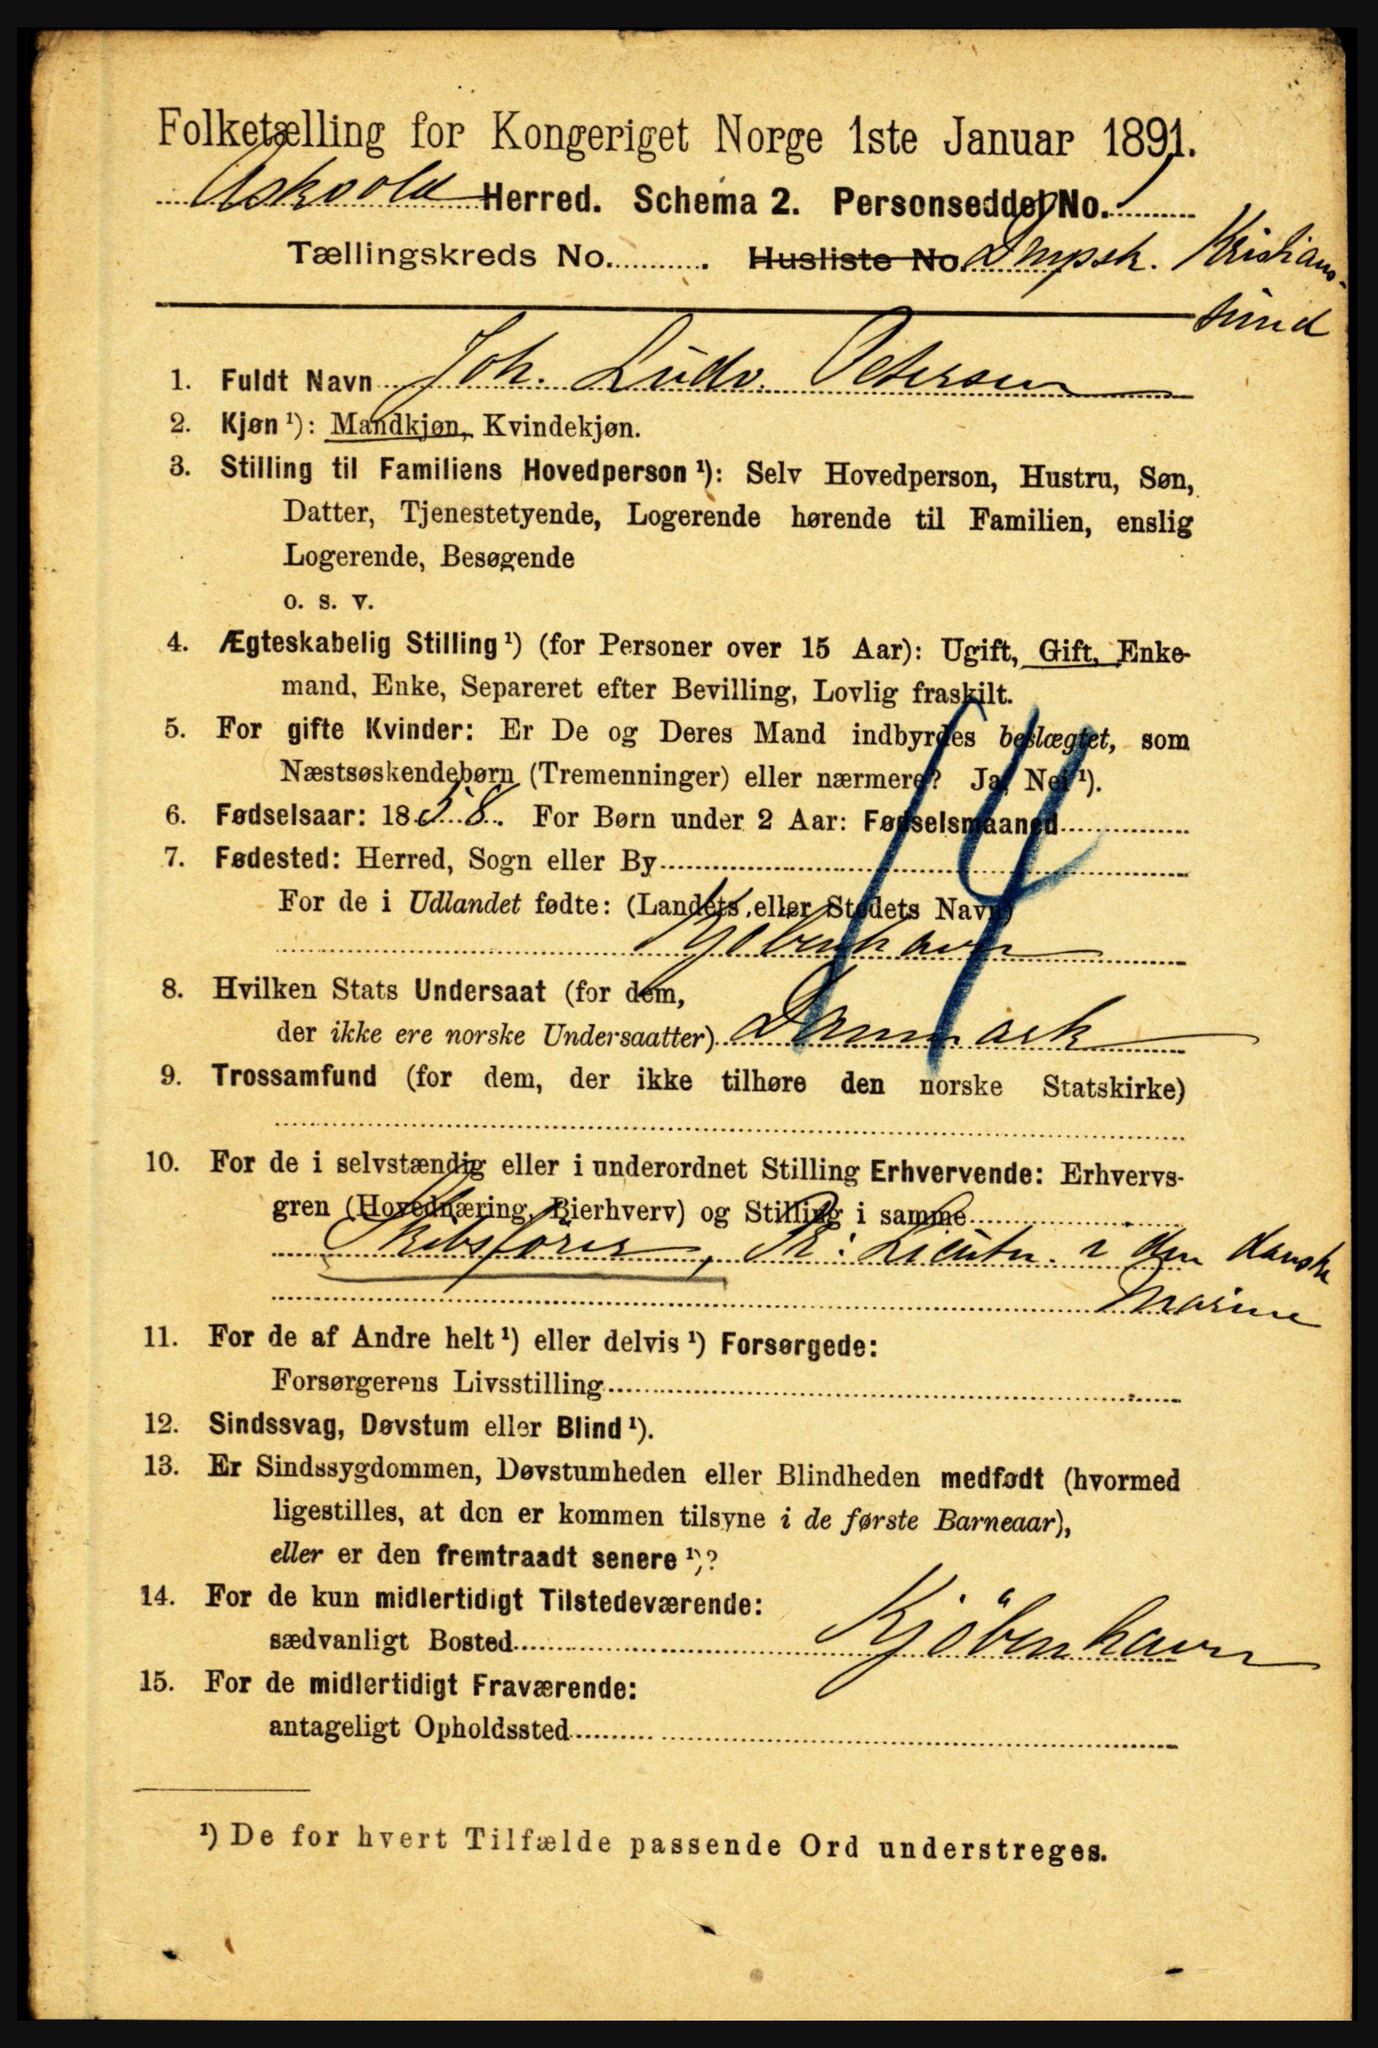 Folketælling for Kongeriget Norge 1ste Januar 1891.
Askvold Herred. Schema 2. Personseddel No. 1
Tællingskreds No. Husliste No. Dmpsk. Kristians-
sund
1. Fuldt Navn Joh. Ludv. Petersen
2. Kjøn¹): Mandkjøn, Kvindekjøn.
3. Stilling til Familiens Hovedperson¹): Selv Hovedperson, Hustru, Søn,
Datter, Tjenestetyende, Logerende hørende til Familien, enslig
Logerende, Besøgende
o. s. v.
4. Ægteskabelig Stilling¹) (for Personer over 15 Aar): Ugift, Gift, Enke-
mand, Enke, Separeret efter Bevilling, Lovlig fraskilt.
5. For gifte Kvinder: Er De og Deres Mand indbyrdes beslægtet, som
Næstsøskendebørn (Tremenninger) eller nærmere? Ja, Nei¹).
6. Fødselsaar: 1858. For Børn under 2 Aar: Fødselsmaaned
7. Fødested: Herred, Sogn eller By
For de i Udlandet fødte: (Landets eller Stedets Navn)
Kjøbenhavn
8. Hvilken Stats Undersaat (for dem,
der ikke ere norske Undersaatter) Danmark
9. Trossamfund (for dem, der ikke tilhøre den norske Statskirke)
10. For de i selvstændig eller i underordnet Stilling Erhvervende: Erhvervs-
gren (Hovednæring, Bierhverv) og Stilling i samme
Skibsfører, Pr: Lieutn. i den danske
Marine
11. For de af Andre helt¹) eller delvis¹) Forsørgede:
Forsørgerens Livsstilling
12. Sindssvag, Døvstum eller Blind¹).
13. Er Sindssygdommen, Døvstumheden eller Blindheden medfødt (hvormed
ligestilles, at den er kommen tilsyne i de første Barneaar),
eller er den fremtraadt senere¹)?
14. For de kun midlertidigt Tilstedeværende:
sædvanligt Bosted Kjöbenhavn
15. For de midlertidigt Fraværende:
antageligt Opholdssted
¹) De for hvert Tilfælde passende Ord understreges.
14